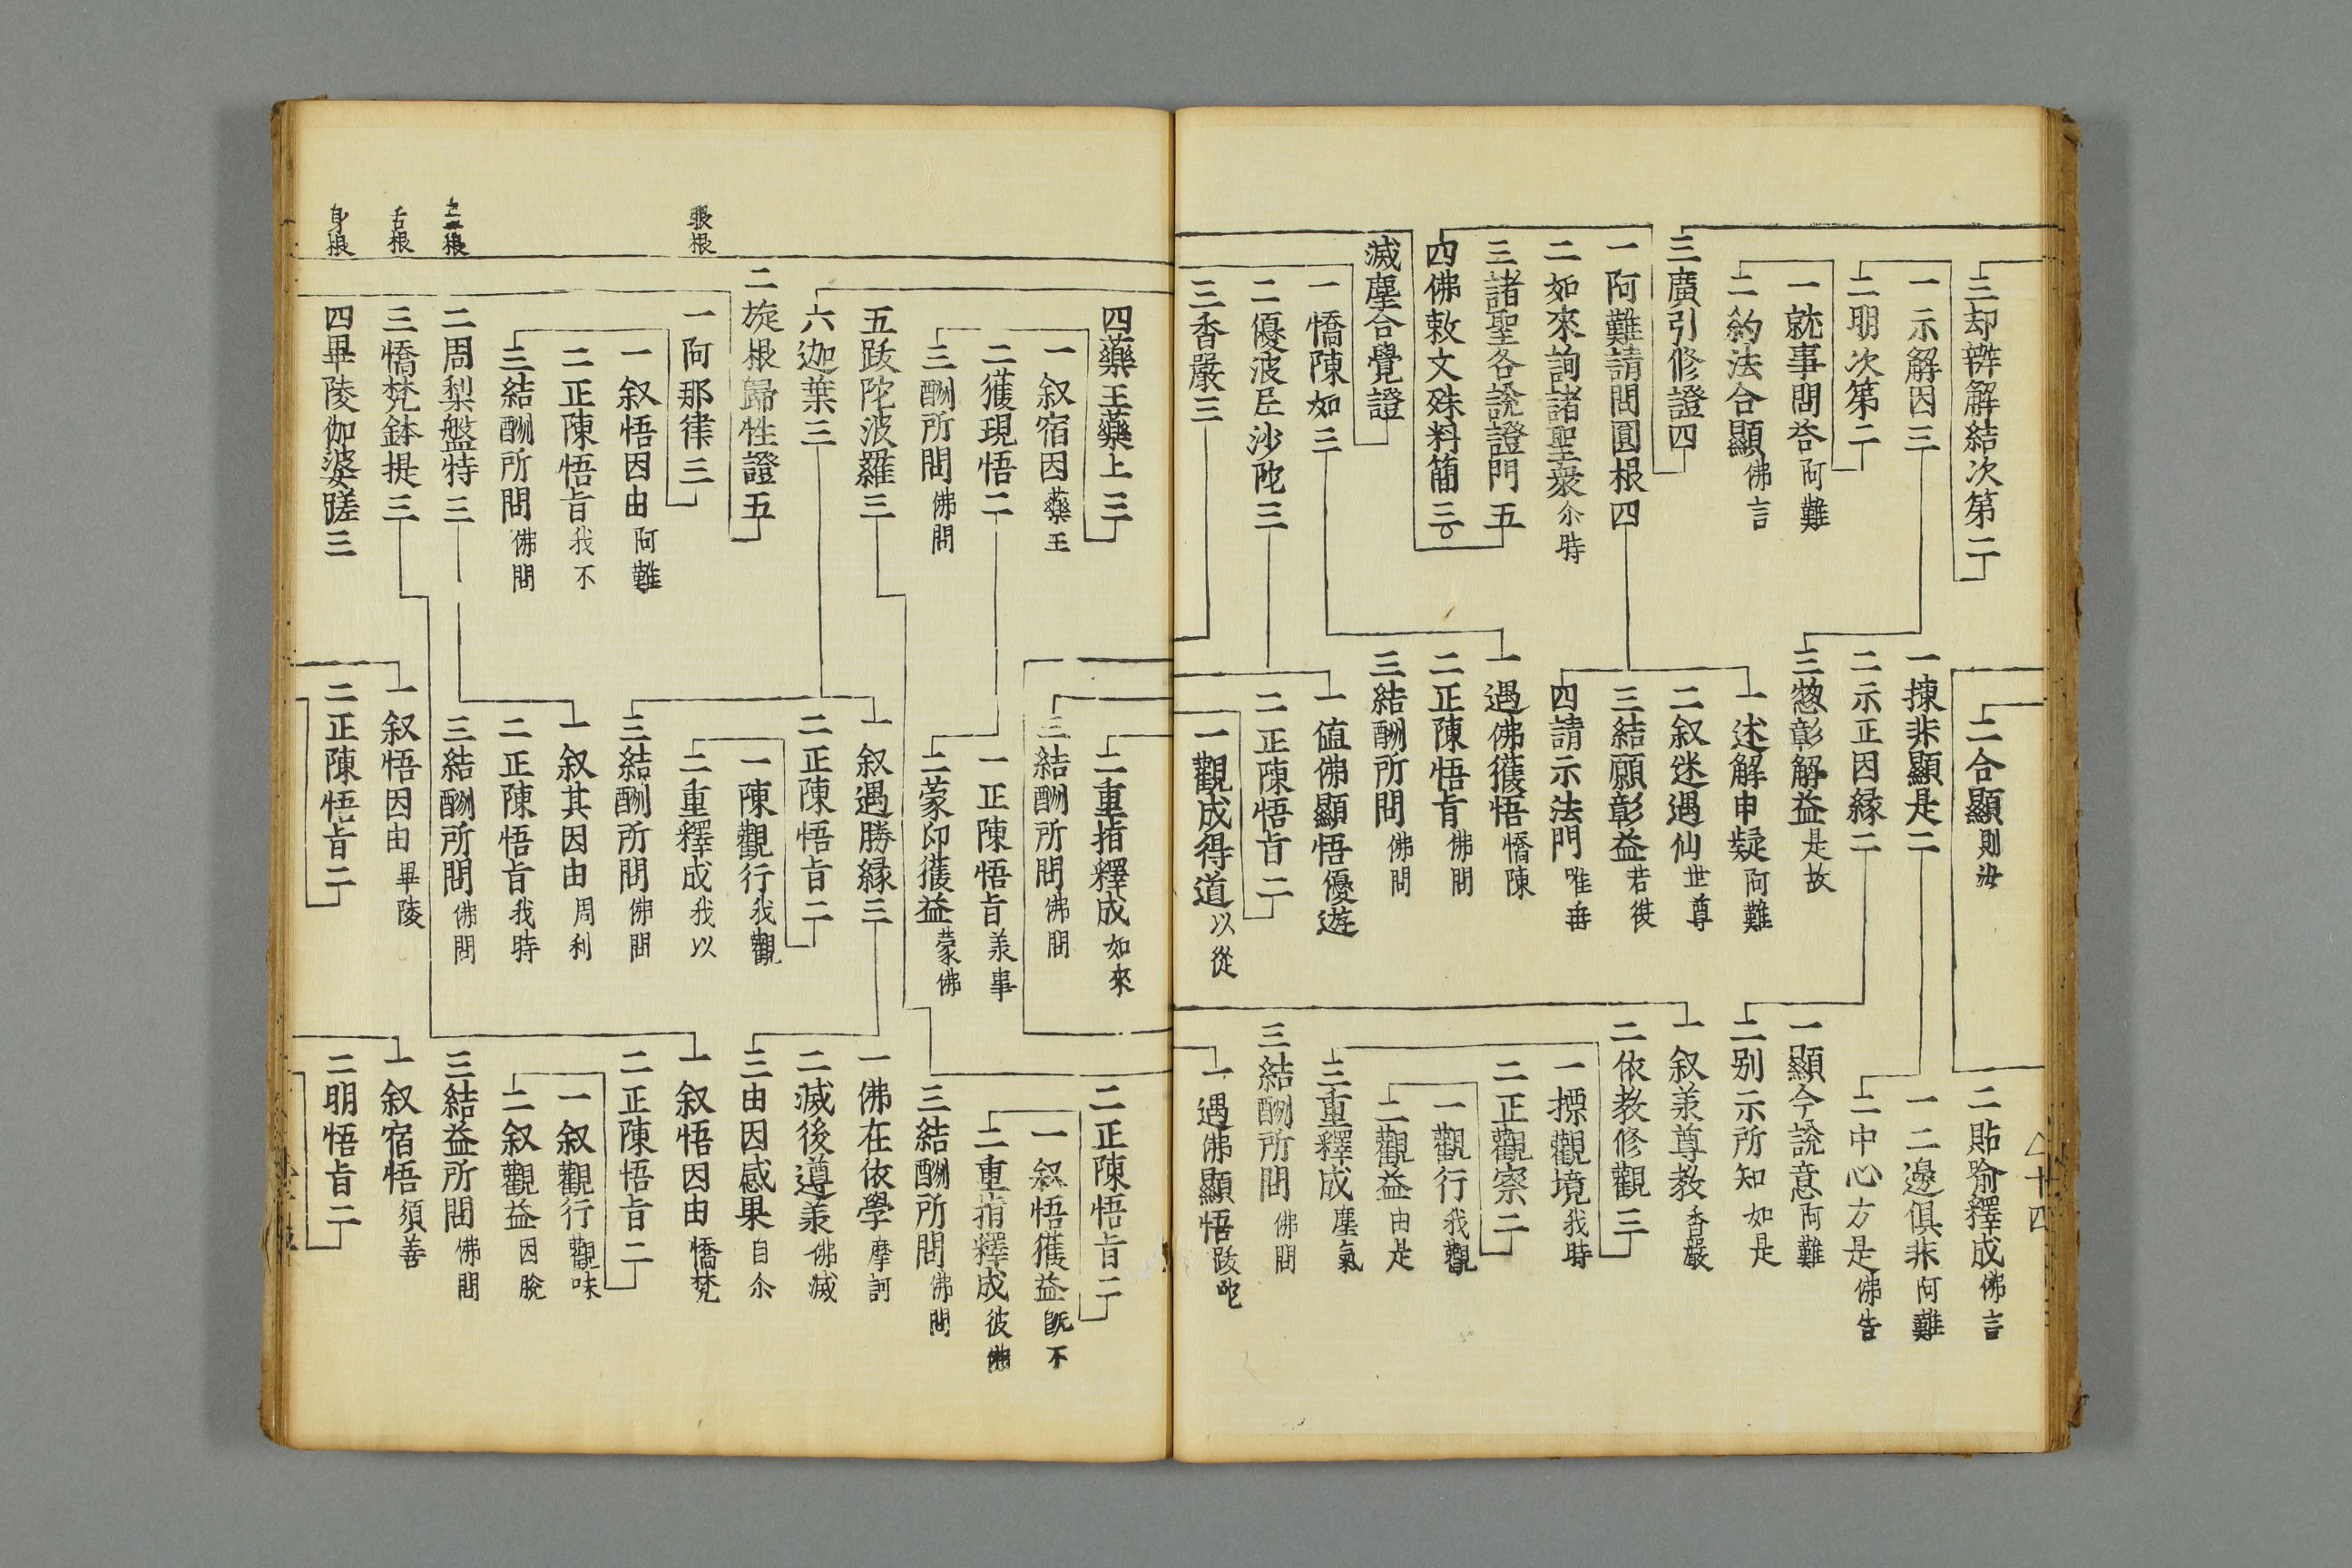 三却辯解結次第二
一示解因三
二明次第二
一就事問荅阿難
二約法合顯佛言
三廣引修證四
一阿難請問圓根四
二如來詢諸聖衆尒時
三諸聖各說證門五
四佛敕文殊料簡三
滅塵合覺證
一憍陳如三
二優波尼沙陀三
三香嚴三
二合顯則汝
一揀非顯是二
二示正因緣二
三惣彰解益是故
一述解申疑阿難
二叙迷遇仙世尊
三結願彰益若從
四請示法門唯垂
一遇佛獲悟憍陳
二正陳悟旨佛問
三結酬所問佛問
一値佛顯悟優遊
二正陳悟旨二
一觀成得道以從
二貼喻釋成佛言
一二邊俱非阿難
二中心方是佛告
一顯今說意阿難
二別示所知如是
一叙羕尊教香嚴
二依教修觀三
一摽觀境我時
二正觀察二
一觀行我觀
二觀益由是
三重釋成塵氣
三結酬所問佛問
一遇佛顯悟跋陀
十四
四藥王藥上三
一叙宿因藥王
二獲現悟二
三酬所問佛問
五跋陀波羅三
六迦葉三
二旋根歸性證五
眼根
一阿那律三
一叙悟因由阿難
二正陳悟旨我不
三結酬所問佛問
二周梨盤特三
舌根
三憍梵鉢提三
身根
四畢陵伽婆蹉三
二重指釋成如來
三結酬所問佛問
一正陳悟旨羕事
二蒙印獲益蒙佛
一叙遇勝緣三
二正陳悟旨二
一陳觀行我觀
二重釋成我以
三結酬所問佛問
一叙其因由周利
二正陳悟旨我時
三結酬所問佛問
一叙悟因由畢陵
二正陳悟旨二
二正陳悟旨二
一叙悟獲益旣不
二重指釋成彼佛
三結酬所問佛問
一佛在依學摩訶
二滅後遵羕佛滅
三由因感果自尒
一叙悟因由憍梵
二正陳悟旨二
一叙觀行觀味
二叙觀益因脫
三結益所問佛問
一叙宿悟須善
二明悟旨二